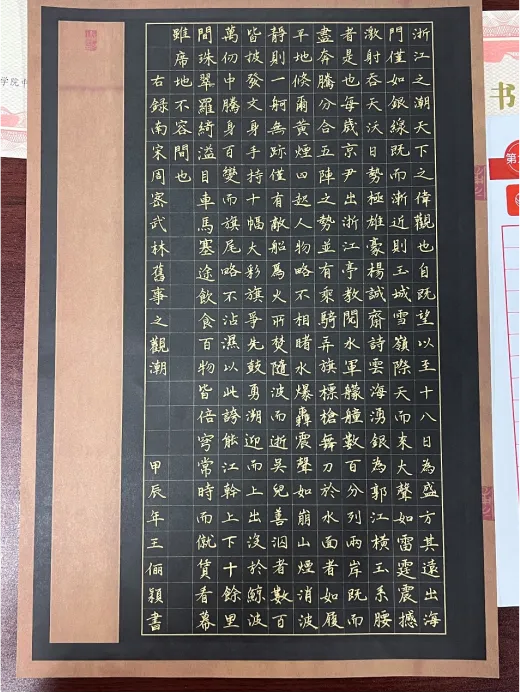 浙江之潮天下之偉觀也自既望以至十八日為盛方其遠出海
門僅如銀線既而漸近則玉城雪嶺際天而來大聲如雷霆震撼
激射吞天沃日勢極雄豪楊誠齋詩雲海湧銀為郭江橫玉系腰
者是也每歲京尹出浙江亭教閱水軍艨艟數百分列兩岸既而
盡奔騰分合五陣之勢並有乘騎弄旗標槍舞刀於水面者如履
平地倏爾黃煙四起人物略不相睹水爆轟震聲如崩山煙消波
靜則一舸無跡僅有敵船為火所焚隨波而逝吳兒善泅者數百
皆披發文身手持十幅大彩旗爭先鼓勇溯迎而上出沒於鯨波
萬仞中騰身百變而旗尾略不沾濕以此誇能江幹上下十餘里
間珠翠羅綺溢目車馬塞途飲食百物皆倍穹常時而僦賃看幕
雖席地不容間也
右錄南宋周密武林舊事之觀潮 甲辰年王俪穎書
学院书
书
第